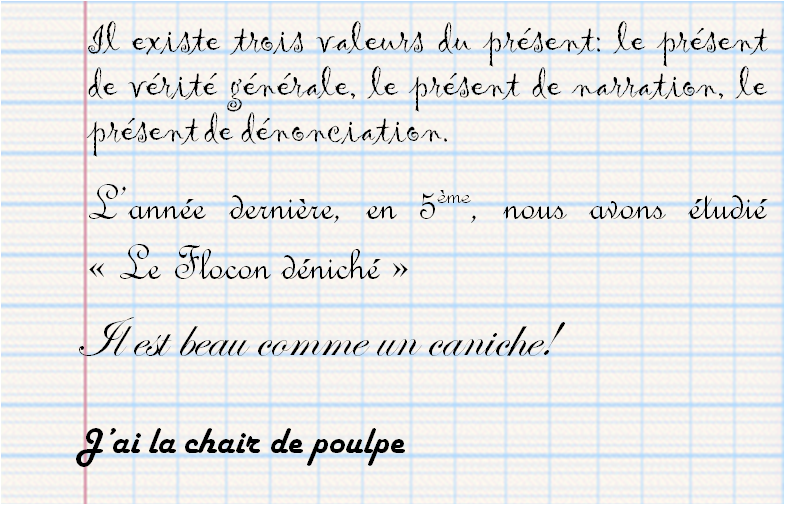 Il existe trois valeurs du présent: le présent
de vérité générale, le présent de narration, le
présent de dénonciation.
L'année dernière, en 5ème, nous avons étudié
« Le Flocon déniché »
Il est beau comme un caniche!
J'ai la chair de poulpe